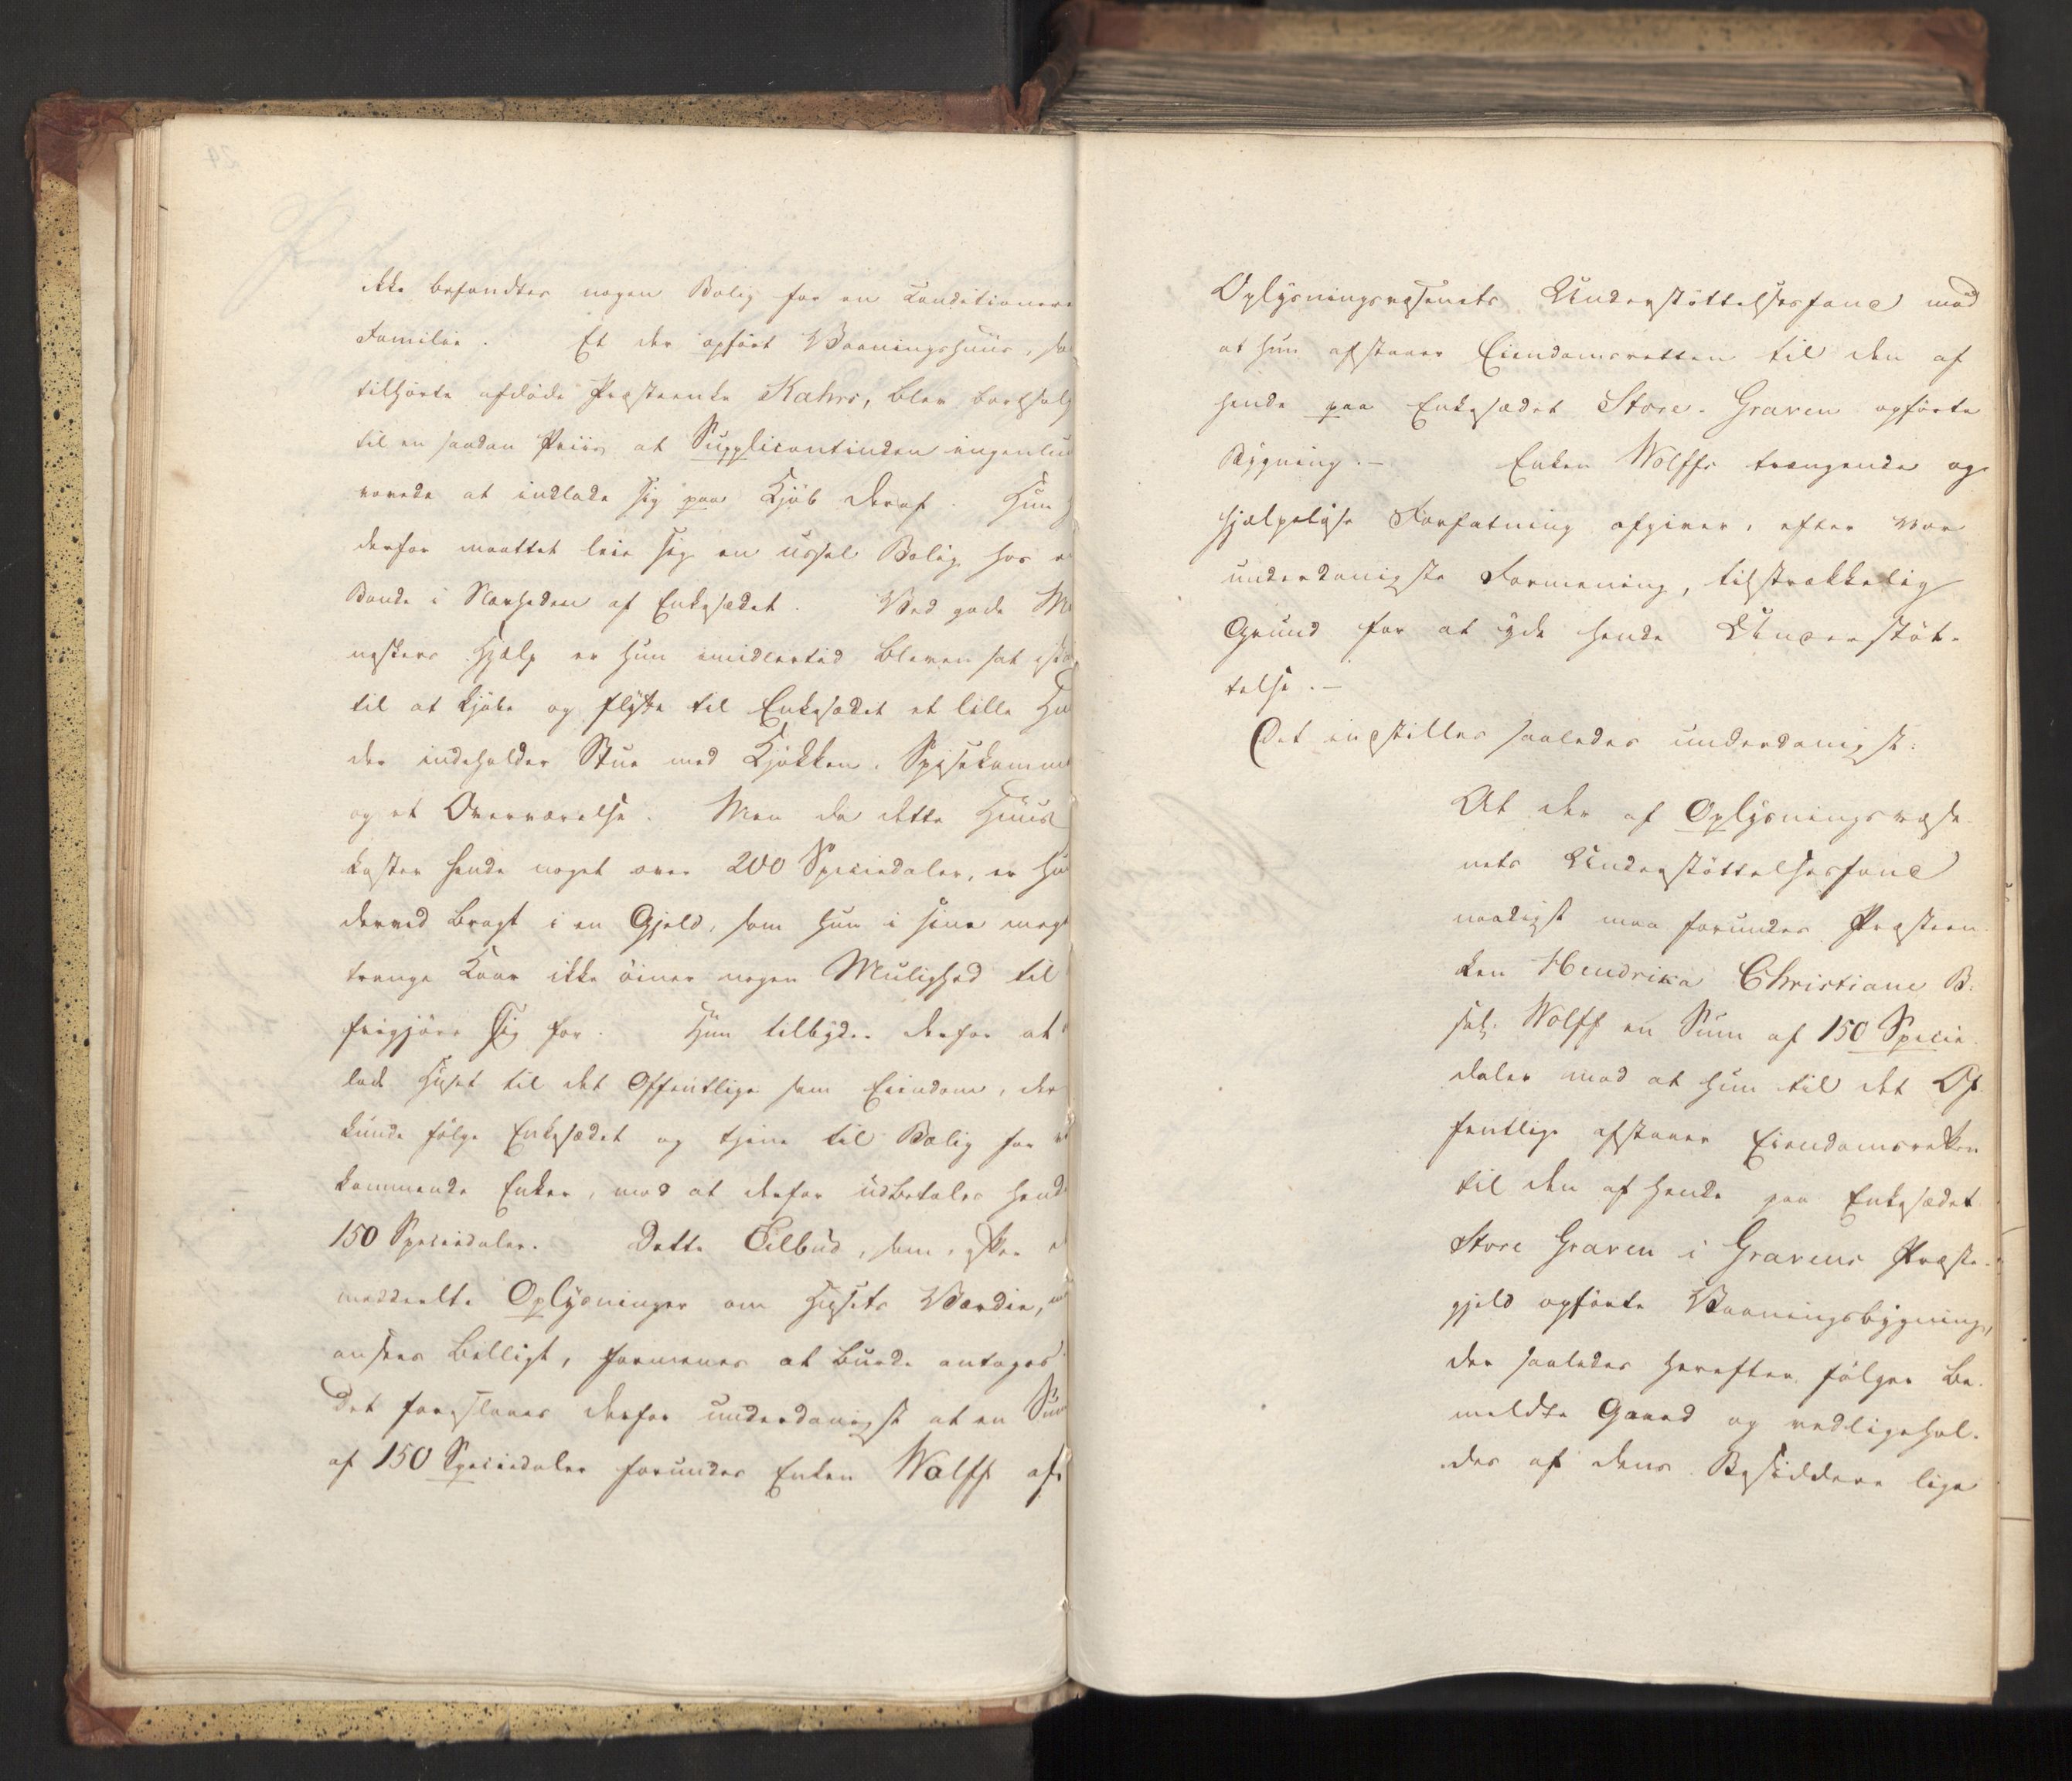 ikke befandtes nogen Bolig for en Conditionere
Familie. Et der opført Vaaningshuus, so
tilhørte afdøde Præsteenke Kahrs, blev bortsolg
til en saadan Priis at Supplicantinden ingenlu
vovede at indlade sig paa Kjøb deraf. Hun h
derfor maattet leie sig en ussel Bolig hos e
Bonde i Nærheden af Enkesædet. Ved gode Me
neskers Hjelp er hun imidlertid bleven sat istan
til at kjøbe og flytte til Enkesædet et lille Hu
der indeholder Stue med Kjøkken, Spisekamme
og et Overværelse. Men da dette Huus
koster hende noget over 200 Speciedaler, er hu
derved bragt i en Gjeld, som hun i sine meget
trange Kaar ikke øiner nogen Mulighed til
frigjøre sig for. Hun tilbyder derfor at
lade Huset til det Offentlige som Eiendom, der
kunde følge Enkesædet og tjene til Bolig for
kommende Enker, mod at derfor udbetales hende
150 Speciedaler. Dette Tilbud, som, efter d
meddeelte Oplysninger om Husets Værdie, m
ansees billigt, formenes at burde antages.
Det foreslaaes derfor underdanigst at en Sum
af 150 Speciedaler forundes Enken Wolff af
Oplysningsvæsenets Understøttelsesfond mod
at hun afstaaer Eiendomsretten til den af
hende paa Enkesædet Store-Graven opførte
Bygning.— Enken Wolffs trængende og
hjælpeløse Forfatning afgiver, efter vor
underdanigste Formening, tilstrækkelig
Grund for at yde hende Understøt-
telse.—
Det indstilles saaledes underdanigst:
At der af Oplysningsvæse-
nets Understøttelsesfond
naadigst maa forundes Præsteen-
ken Hendrika Christiane B:
sal: Wolff en Sum af 150 Specie-
daler mod at hun til det Of-
fentlige afstaaer Eiendomsretten
til den af hende paa Enkesædet
Store Graven i Gravens Præste-
gjeld opførte Vaaningsbygning,
der saaledes herefter følger be-
meldte Gaard og vedligehol-
des af dens Besiddere lige